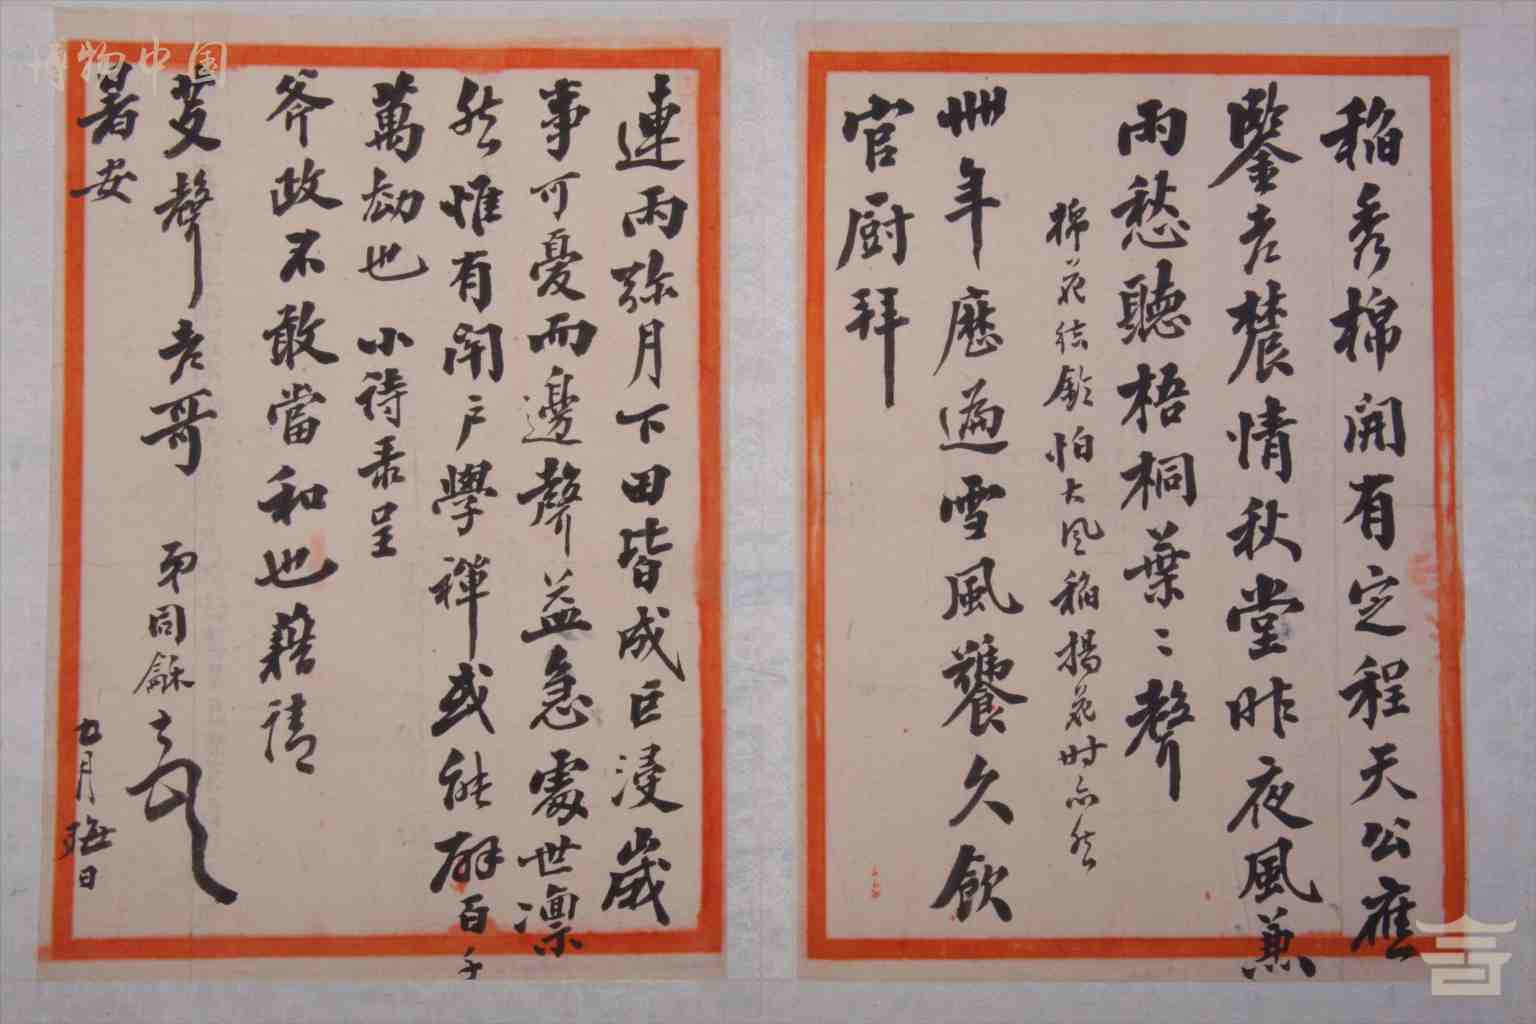 稻秀棉開有定程天公應
鑒老農情秋堂昨夜風兼
雨愁聽梧桐葉葉聲
棉花結鈴怕大風稻揚花時亦然
卅年歷遍雪風饕久飲
官厨拜
連雨弥月下田皆成巨浸歲
事可憂而邊聲益急處世凛
然惟有閉户學禪或能辟百千
萬劫也 小詩录呈
斧政不敢當和也藉請
菱聲老哥 弟同龢
暑安
七月晦日
博物中国